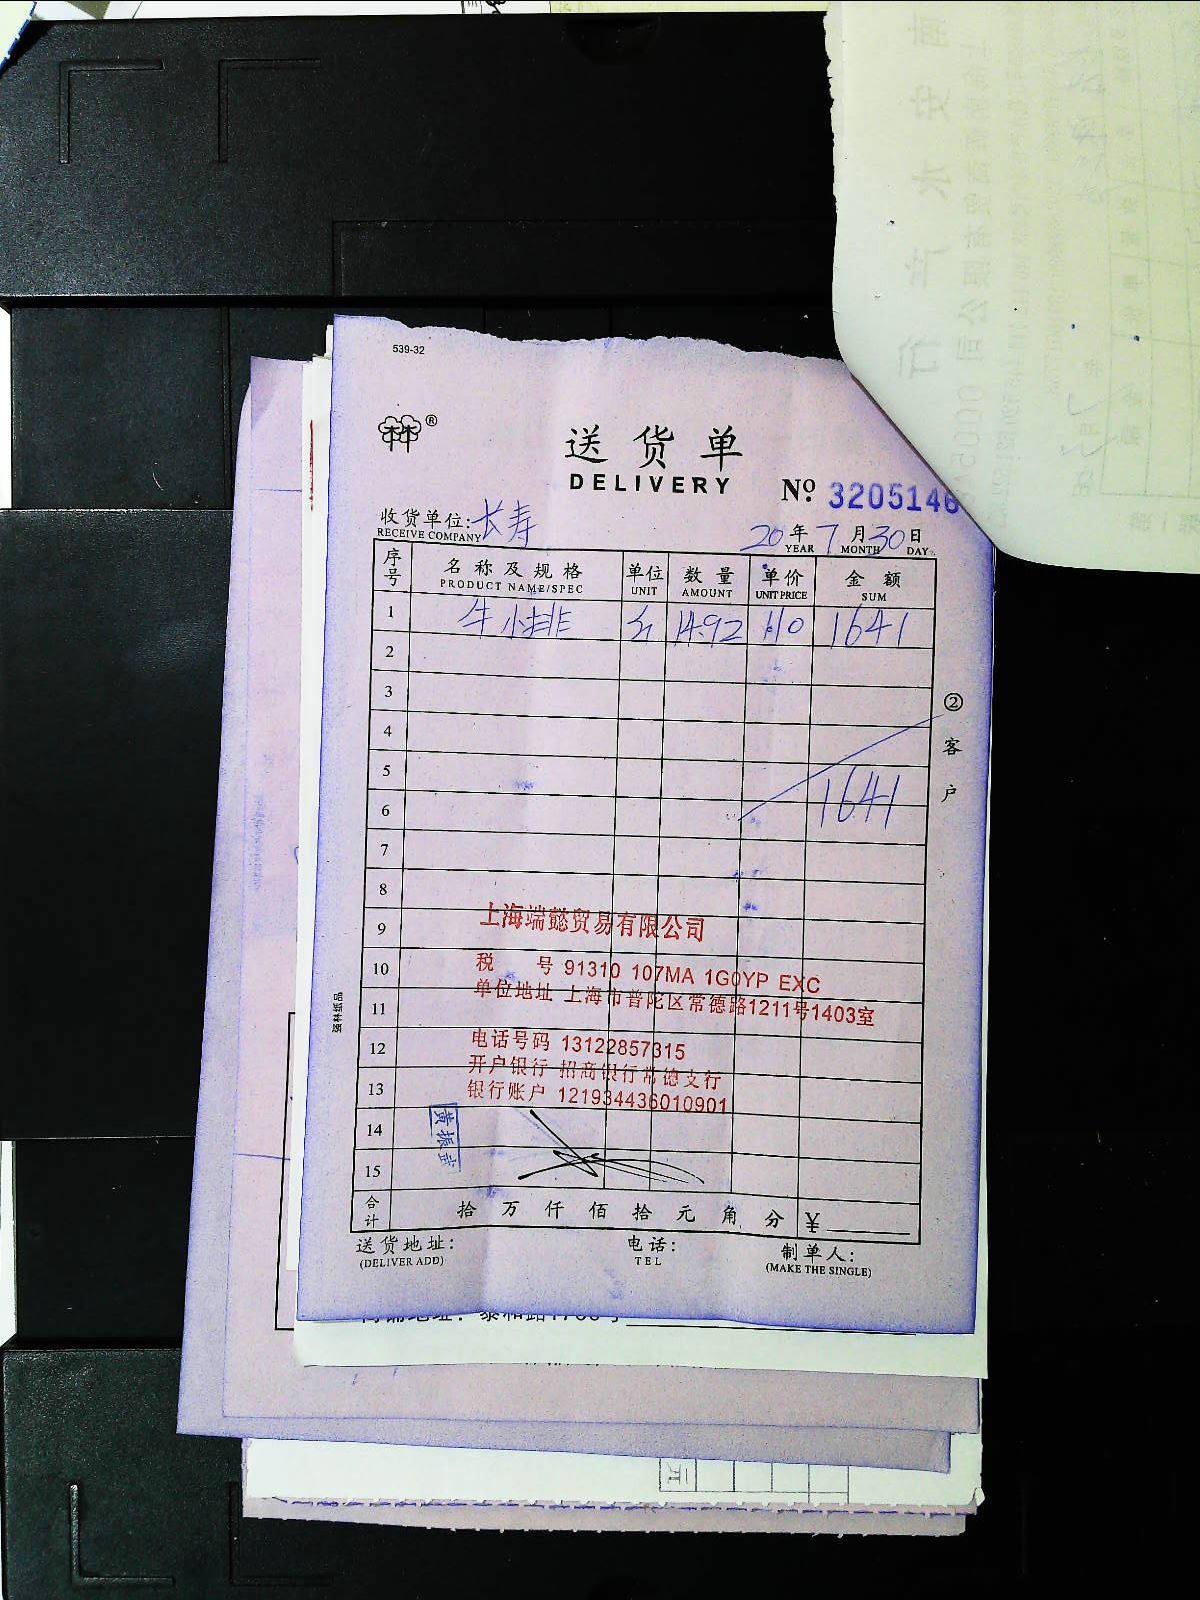 539-32
®
送货单
DELIVERY
№ 3205146
收货单位: 长寿
RECEIVE COMPANY
20 年 7 月 30 日
YEAR MONTH DAY
序号 名称及规格 单位 数量 单价 金额
PRODUCT NAME/SPEC UNIT AMOUNT UNIT PRICE SUM
1 牛小排 14.92 110 1641
2
3
4
5
6 1641
7
8
9
10
11
12
13
14
15
② 客户
上海端懿贸易有限公司
税 号 91310 107MA 1G0YP EXC
单位地址 上海市普陀区常德路1211号1403室
电话号码 13122857315
开户银行 招商银行常德支行
银行账户 121934436010901
黄振
强林纸品
合计 拾 万 仟 佰 拾 元 角 分 ¥
送货地址: 电话: 制单人:
(DELIVER ADD) TEL (MAKE THE SINGLE)
元